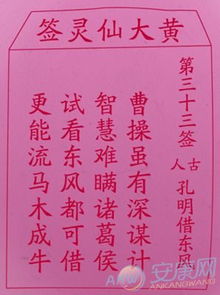 黄大仙灵签
第三十三签
古人 孔明借东风
曹操虽有深谋计
智慧难瞒诸葛侯
试看东风都可借
更能流马木成牛
安康网
ANKANGWANG